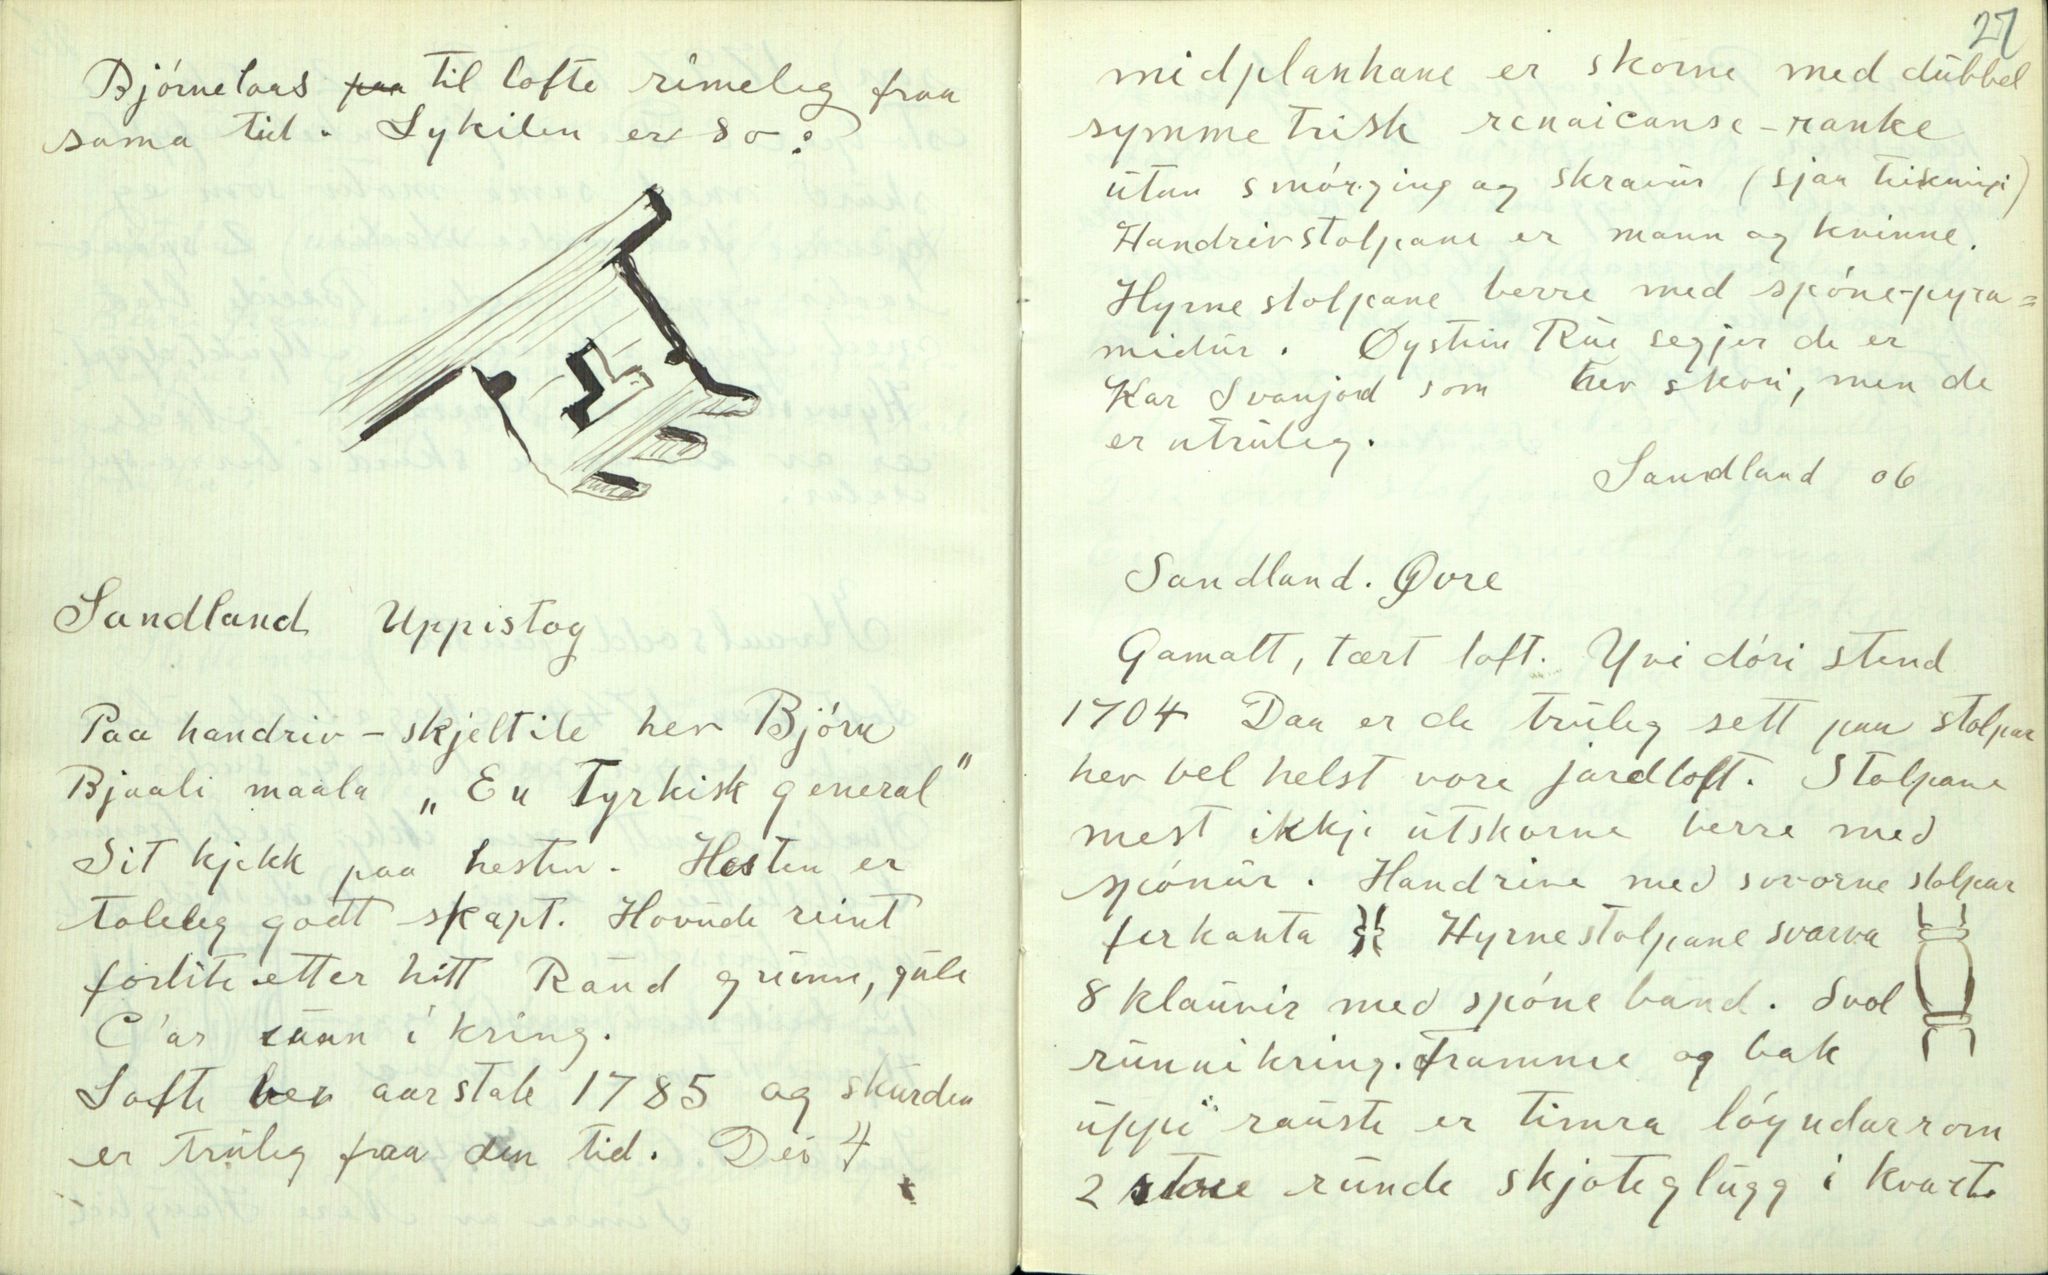 Bjórnelaas paa til lofte rimeleg fraa
sama tid. Lykilen er so:
Sandland Uppistog
Paa handriv-skjeltile hev Bjórn
Bjaali maala „En Tyrkisk general"
Sit kjekk paa hesten. Hesten er
toleleg godt skapt. Hovude reint
forlite etter hitt Raud grunn, gule
C'ar rúnn i kring.
Lofte ber aarstale 1785 og skurden
er truleg fraa den tid. Dei 4
27
midplankane er skorne med dubbel
symmetrisk renaicanse-ranke
utan smórging og skravur (sjaa teikningi)
Handrivstolpane er mann og kvinne.
Hyrnestolpane berre med spónepyra=
midur. Øystein Rue segjer de er
Kar Svanjord som hev skori, men de
er utruleg.
Sandland 06
Sandland. Øvre
Gamalt, tært loft. Yvi dóri stend
1704 Daa er de truleg sett paa stolpar
hev vel helst vore jordloft. Stolpane
mest ikkji utskorne berre med
spónur. Handrive med svorne stolpar
firkanta Hyrnestolpane svarva
8 klauvir med spóneband. Svol
runn i kring. Framme og bak
uppi rauste er timra lóyndarrom
2 store runde skjoteglugg i kvart.